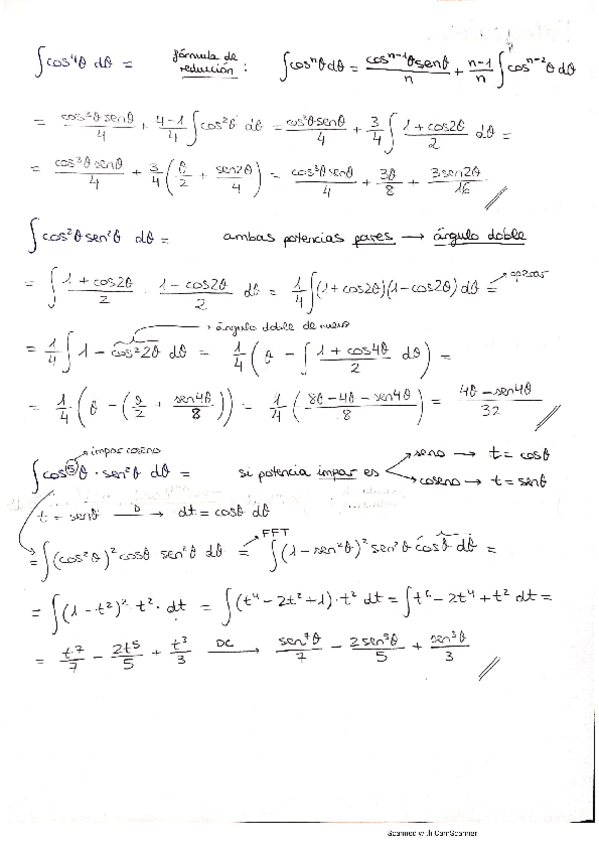 ∫cos⁴θ dθ = fórmula de reducción: ∫cosⁿθdθ = (cosⁿ⁻¹θsenθ)/n + (n-1)/n ∫cosⁿ⁻²θ dθ
= (cos³θ senθ)/4 + (4-1)/4 ∫cos²θ dθ = (cos³θsenθ)/4 + 3/4 ∫ (1+cos2θ)/2 dθ =
= (cos³θ senθ)/4 + 3/4 (θ/2 + sen2θ/4) = (cos³θ senθ)/4 + 3θ/8 + 3sen2θ/16
∫cos²θ sen²θ dθ = ambas potencias pares → ángulo doble
= ∫ (1+cos2θ)/2 · (1-cos2θ)/2 dθ = 1/4 ∫(1+cos2θ)(1-cos2θ)dθ =
→ ángulo doble de nuevo
= 1/4 ∫ 1 - cos²2θ dθ = 1/4 (θ - ∫ (1+cos4θ)/2 dθ) =
= 1/4 (θ - (θ/2 + sen4θ/8)) = 1/4 ((8θ-4θ-sen4θ)/8) = (4θ-sen4θ)/32
→ impar coseno
∫cos⁵θ · sen²θ dθ = si potencia impar es
seno → t = cosθ
coseno → t = senθ
t = senθ —D→ dt = cosθ dθ
= ∫(cos²θ)² cosθ sen²θ dθ = FFT ∫(1-sen²θ)² sen²θ cosθ dθ =
= ∫(1-t²)² t² · dt = ∫(t⁴-2t²+1)·t² dt = ∫t⁶-2t⁴+t² dt =
= t⁷/7 - 2t⁵/5 + t³/3 —DC→ sen⁷θ/7 - 2sen⁵θ/5 + sen³θ/3
Scanned with CamScanner